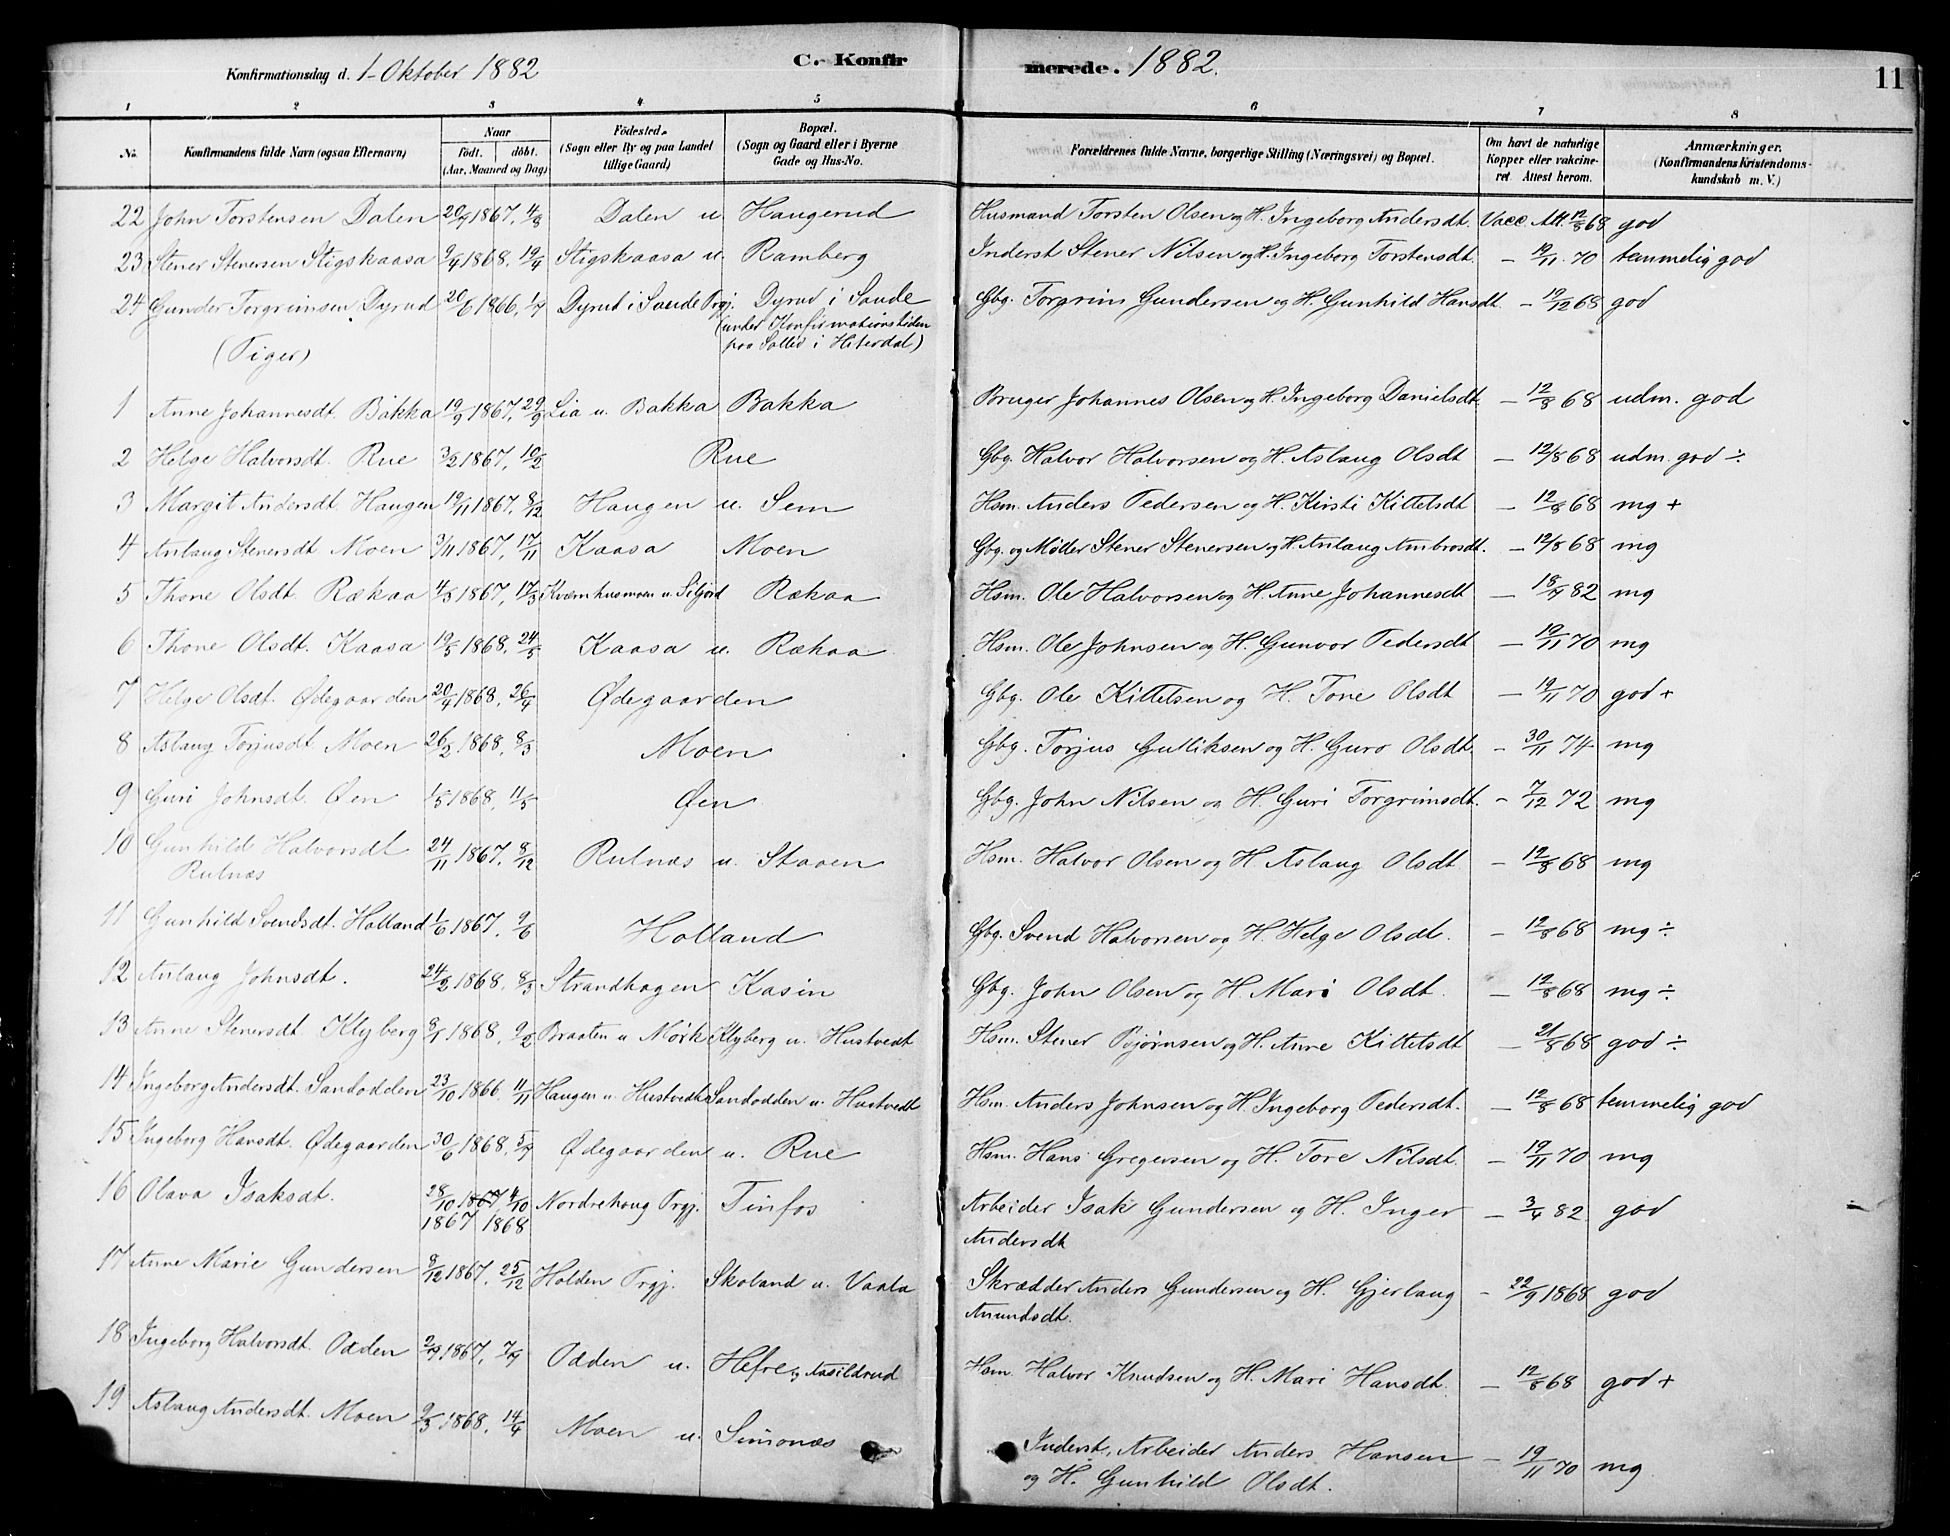 Konfirmationsdag d. 1-Oktober 1882 C. Konfirmerede. 1882. 11
1 2 3 4 5 6 7 8
No. Konfirmandens fulde Navn (ogsaa Efternavn) Naar födt. döbt. (Aar, Maaned og Dag) Födested. (Sogn eller By og paa Landet tillige Gaard) Bopæl. (Sogn og Gaard eller i Byerne Gade og Hus-No. Forældrenes fulde Navne, borgerlige Stilling (Næringsvei) og Bopæl. Om havt de naturlige Kopper eller vakcineret Attest herom. Anmærkninger. (Konfirmandens Kristendomskundskab m. V.)
22 John Torstensen Dalen 20/9 1867, 4/8 Dalen u. Haugerud Husmand Torsten Olsen og H. Ingeborg Andersdt. Vacc. Att. 12/8 68 god
23 Stener Stenersen Stigskaasa 9/4 1868, 19/4 Stigskaasa u. Ramberg Inderst Stener Nilsen og H. Ingeborg Torstensdt. – 19/11 70 temmelig god
24 Gunder Torgrimsen Dyrud 20/6 1866, 1/7 Dyrud i Saude Prgj. Dyrud i Saude Gbg. Torgrim Gundersen og H. Gunhild Hansdt. – 19/12 68 god
(Tiger) (under Konfirmationstiden
paa Sollid i Hiterdal)
1 Anne Johannesdt. Bakka 19/9 1867, 29/9 Lia u. Bakka Bakka Bruger Johannes Olsen og H. Ingeborg Danielsdt. – 12/8 68 udm. god
2 Helge Halvorsdt. Rue 3/2 1867, 10/2 Rue Gbg. Halvor Halvorsen og H. Aslaug Olsdt – 12/8 68 udm. god ÷
3 Margit Andersdt. Haugen 19/11 1867, 8/12 Haugen u. Sem Hsm. Anders Pedersen og H. Kirsti Kittelsdt – 12/8 68 mg +
4 Anlaug Stenersdt Moen 3/11 1867, 17/11 Kaasa Moen Gbg. og Møller Stener Stenersen og H. Anlaug Ambrosdt. – 12/8 68 mg
5 Thone Olsdt. Rækaa 4/3 1867, 17/3 Kværnhusmoen u. Siljord Rækaa Hsm. Ole Halvorsen og H. Anne Johannesdt – 18/7 82 mg
6 Thone Olsdt. Kaasa 19/5 1868, 24/5 Kaasa u. Rækaa Hsm. Ole Johnsen og H. Gunvor Pedersdt – 19/11 70 mg
7 Helge Olsdt. Ødegaarden 20/4 1868, 26/4 Ødegaarden Gbg. Ole Kittelsen og H. Tone Olsdt – 19/11 70 god +
8 Aslaug Torjusdt. Moen 26/2 1868, 8/3 Moen Gbg. Torjus Gulliksen og H. Guro Olsdt. – 30/11 74 mg
9 Guri Johnsdt. Øen 1/5 1868, 11/5 Øen Gbg. John Nilsen og H. Guri Torgrimsdt. – 7/12 72 mg
10 Gunhild Halvorsdt 24/11 1867, 8/12 Rulnæs u. Staaen Hsm. Halvor Olsen og H. Aslaug Olsdt – 12/8 68 mg
Rulnæs
11 Gunhild Svendsdt. Holland 1/6 1867, 9/6 Holland Gbg. Svend Halvorsen og H. Helge Olsdt. – 12/8 68 mg ÷
12 Anlaug Johnsdt. 24/2 1868, 8/3 Strandhagen Kasin Gbg. John Olsen og H. Mari Olsdt. – 12/8 68 mg ÷
13 Anne Stenersdt Klyberg 8/1 1868, 9/2 Braaten u Mørk Klyberg u. Hustvedt Hsm. Stener Bjørnsen og H. Anne Kittelsdt – 21/8 68 god ÷
14 Ingeborg Andersdt. Sandodden 23/10 1866, 11/11 Haugen u. Hustvedt Sandodden u. Hustvedt Hsm. Anders Johnsen og H. Ingeborg Pedersdt. – 12/8 68 temmelig god
15 Ingeborg Hansdt. Ødegaarden 30/6 1868, 5/7 Ødegaarden u. Rue Hsm. Hans Gregersen og H. Tore Nilsdt. – 19/11 70 mg
16 Olava Isaksdt. 28/10 1867, 4/10 Nordrehoug Prgj. Tinfos Arbeider Isak Gundersen og H. Inger – 3/4 82 god
1867 1868 Andersdt
17 Anne Marie Gundersen 8/12 1867, 25/12 Holden Prgj. Skoland u. Vaala Skrædder Anders Gundersen og H. Gjerlaug – 22/9 1868 god
Amundsdt.
18 Ingeborg Halvorsdt. Odden 2/7 1867, 7/7 Odden u. Hefre og Aasildrud Hsm. Halvor Knudsen og H. Mari Hansdt. – 12/8 68 god +
19 Aslaug Andersdt. Moen 9/3 1868, 14/4 Moen u. Simonæs Inderst, Arbeider Anders Hansen – 19/11 70 mg
og H. Gunhild Olsdt.